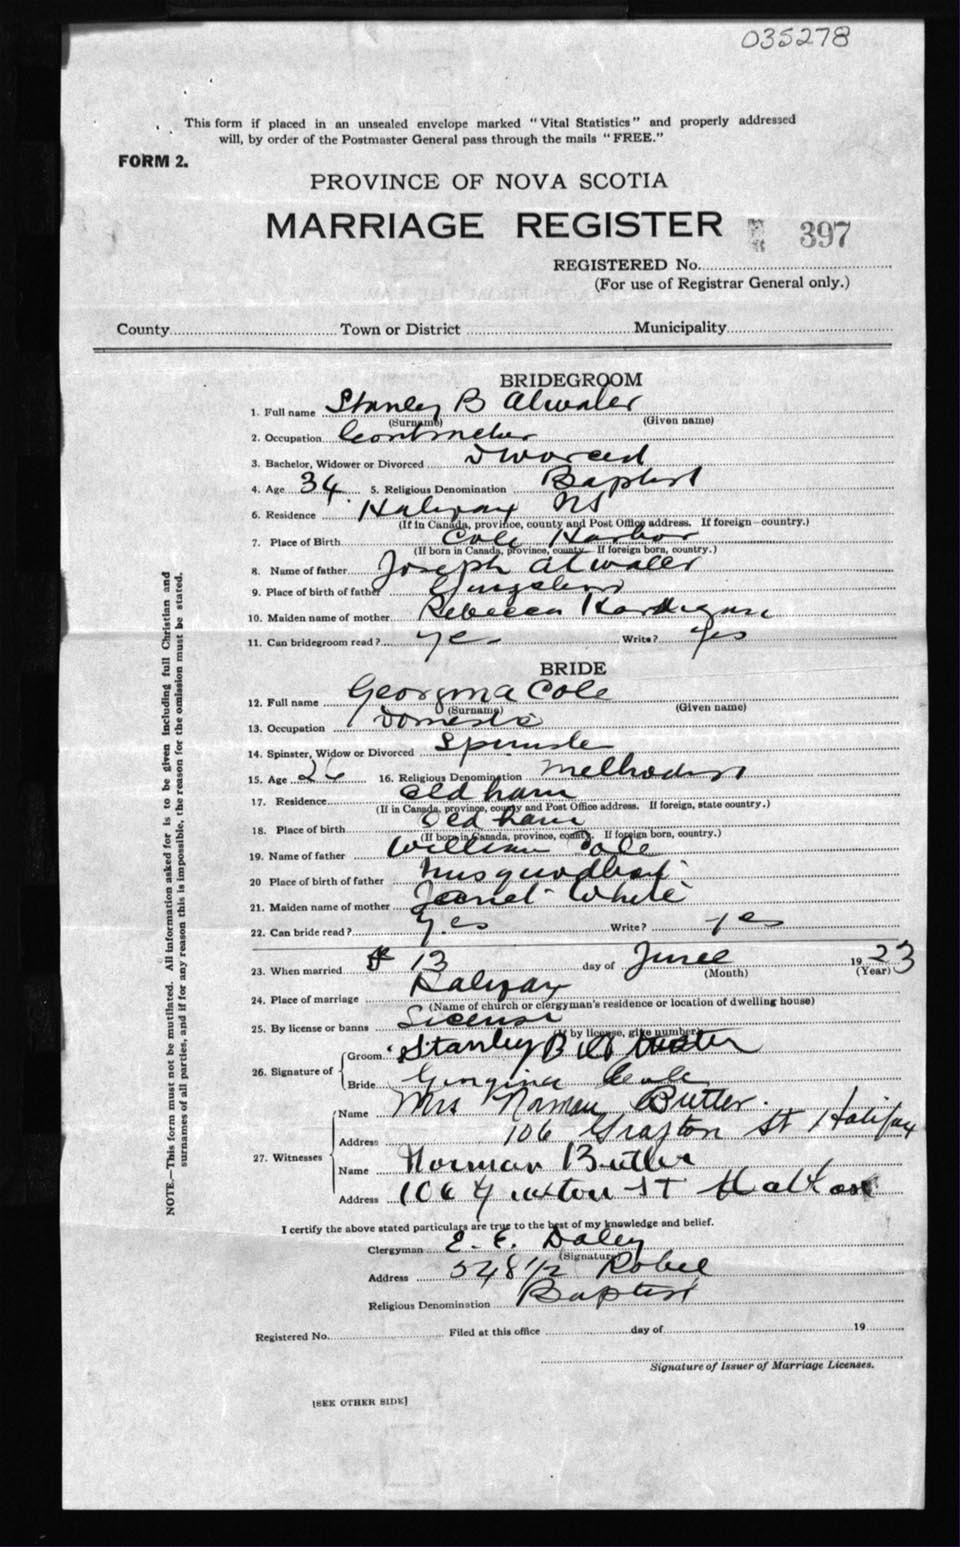 035278
This form if placed in an unsealed envelope marked "Vital Statistics" and properly addressed
will, by order of the Postmaster General pass through the mails "FREE."
FORM 2.
PROVINCE OF NOVA SCOTIA
MARRIAGE REGISTER
397
REGISTERED No.
(For use of Registrar General only.)
County Town or District Municipality
BRIDEGROOM
1. Full name Stanley B Atwater
(Surname) (Given name)
2. Occupation Contractor
3. Bachelor, Widower or Divorced Divorced
4. Age 34 5. Religious Denomination Baptist
6. Residence Halifax NS
(If in Canada, province, county and Post Office address. If foreign—country.)
7. Place of Birth Cole Harbor
(If born in Canada, province, county. If foreign born, country.)
8. Name of father Joseph Atwater
9. Place of birth of father
10. Maiden name of mother Rebecca
11. Can bridegroom read? yes Write? Yes
BRIDE
12. Full name Georgina Cole
(Surname) (Given name)
13. Occupation Domestic
14. Spinster, Widow or Divorced Spinster
15. Age 26 16. Religious Denomination Methodist
17. Residence Oldham
(If in Canada, province, county and Post Office address. If foreign, state country.)
18. Place of birth Oldham
(If born in Canada, province, county. If foreign born, country.)
19. Name of father William Cole
20 Place of birth of father
21. Maiden name of mother White
22. Can bride read? yes Write? yes
23. When married 13 day of June 1923
(Month) (Year)
24. Place of marriage Halifax
(Name of church or clergyman's residence or location of dwelling house)
25. By license or banns License
(If by license, give number)
26. Signature of
Groom Stanley B
Bride Georgina Cole
27. Witnesses
Name Mrs Norman Butler.
Address 106 Grafton St Halifax
Name Norman Butler
Address 106 Grafton ST Halifax
I certify the above stated particulars are true to the best of my knowledge and belief.
Clergyman E. E. Daley
(Signature)
Address 548 1/2 Robie
Religious Denomination Baptist
Registered No. Filed at this office day of 19
Signature of Issuer of Marriage Licenses.
[SEE OTHER SIDE]
NOTE.—This form must not be mutilated. All information asked for is to be given including full Christian and
surnames of all parties, and if for any reason this is impossible, the reason for the omission must be stated.